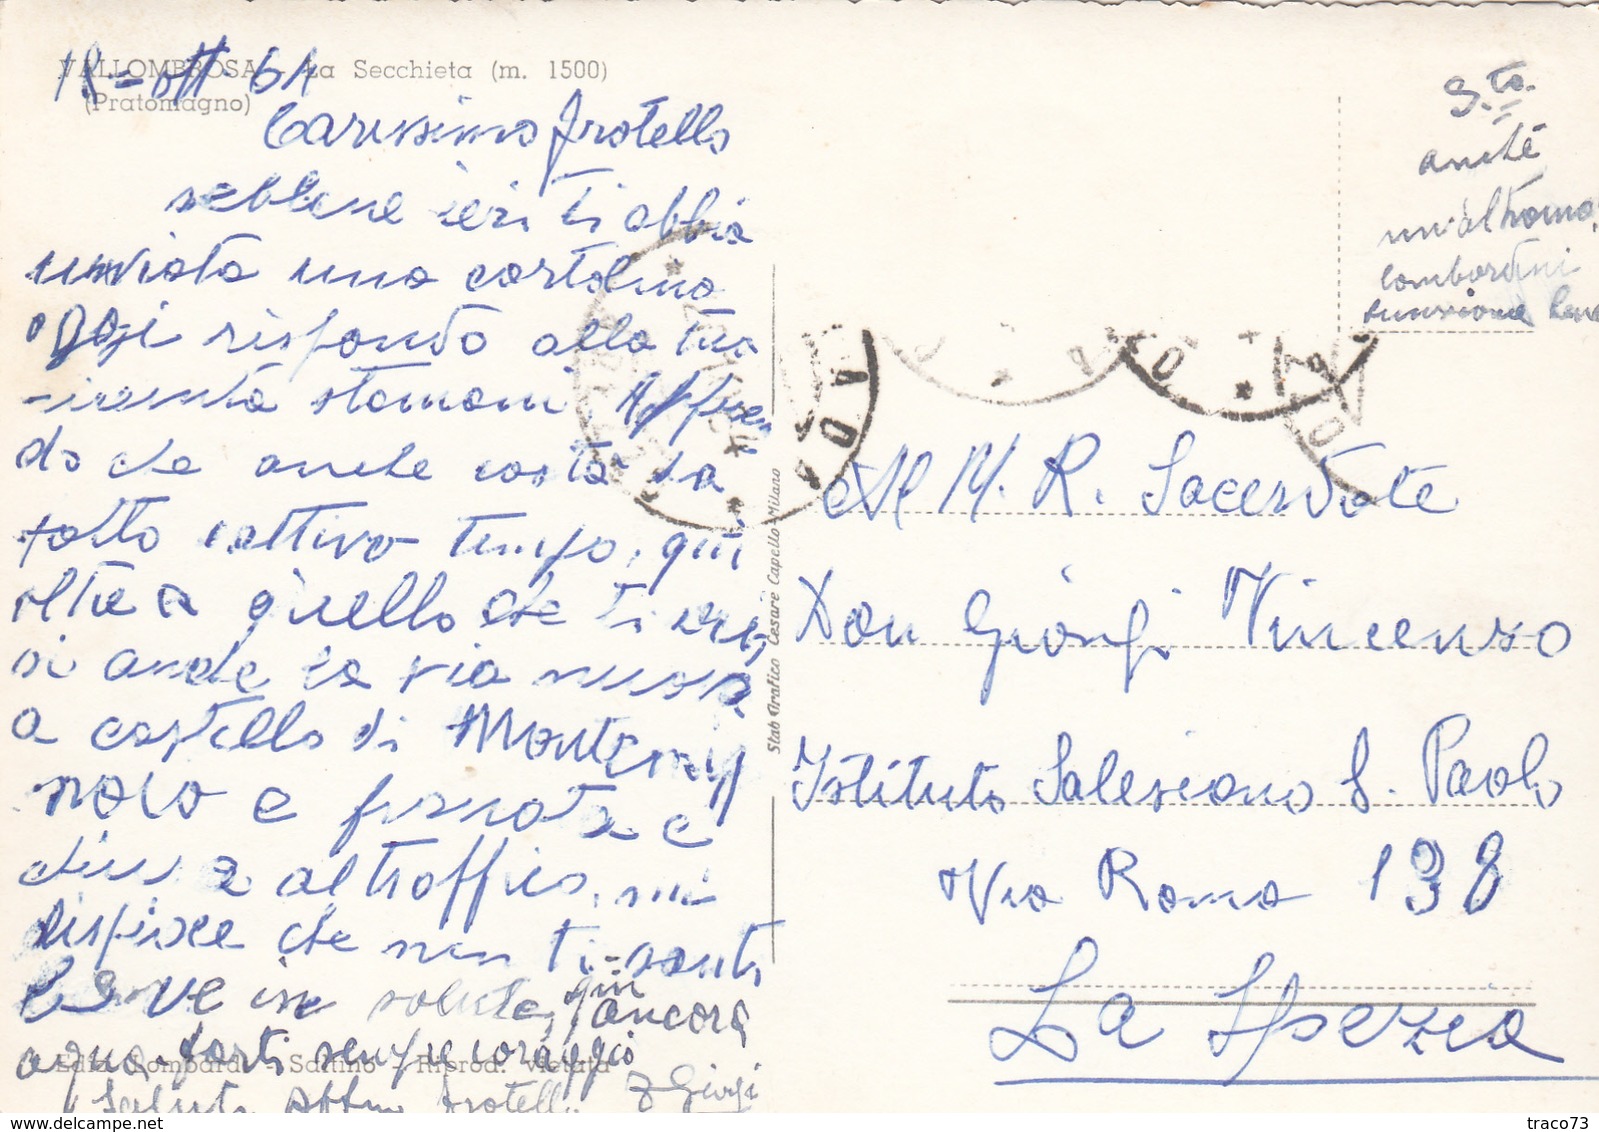 VALLOMBROSA - La Secchieta (m. 1500)
(Pratomagno)
18 = ott. 64
Carissimo fratello
sebbene ieri ti abbia
inviata una cartolina
oggi rispondo alla tua
stamani. Appren
do che anche costà fa
tutto cattivo tempo, qui
oltre a quello che ti
si anche la via nuova
a castello di Montemig
naio e franata e
chiusa al traffico, mi
dispiace che non ti senti
bene in salute, qui ancora
acqua forti sempre coraggio
Saluti fratello Giorgi
Ediz. Lombardi - Saltino - Riprod. vietata
Stab Grafico Cesare Capello - Milano
S.to
anche
un'altromo
Lombardini
funziona bene
Al M. R. Sacerdote
Don Giorgi Vincenzo
Istituto Salesiano S. Paolo
Via Roma 138
La Spezia
traco73